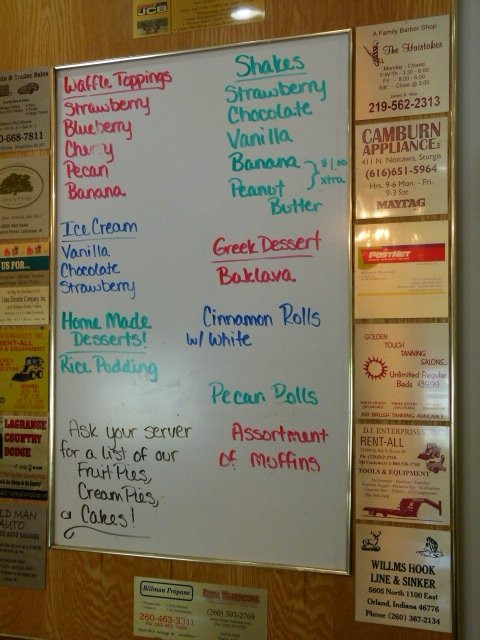 JCB
Waffle Toppings
Strawberry
Blueberry
Cherry
Pecan
Banana
Ice Cream
Vanilla
Chocolate
Strawberry
Home Made
Desserts!
Rice Pudding
Ask your server
for a list of our
Fruit Pies,
Cream Pies,
or Cakes!
Shakes
Strawberry
Chocolate
Vanilla
Banana
Peanut
Butter
$1.00
xtra
Greek Dessert
Baklava
Cinnamon Rolls
w/ White
Pecan Rolls
Assortment
of Muffins
& Trailer Sales
0-668-7811
US FOR...
RENT-ALL
LAGRANGE
COUNTRY
DODGE
OLD MAN
AUTO
A Family Barber Shop
The Hairtaker
Monday - Closed
219-562-2313
CAMBURN
APPLIANCE, INC
411 N. Nottawa, Sturgis
(616) 651-5964
Hrs. 9-6 Mon. - Fri.
9-3 Sat.
MAYTAG
POSTNET
GOLDEN
TOUCH
TANNING
SALONS
Unlimited Regular
Beds $39.99
AIR BRUSH TANNING AVAILABLE
D.J. ENTERPRISES
RENT-ALL
TOOLS & EQUIPMENT
WILLMS HOOK
LINE & SINKER
5605 North 1100 East
Orland, Indiana 46776
Phone (260) 367-2134
Billman Propane
260-463-
(260) 593-2769